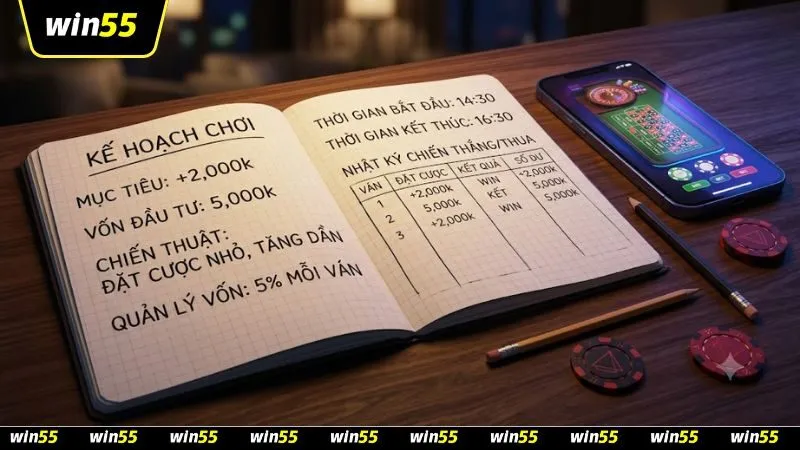 win55
KẾ HOẠCH CHƠI
MỤC TIÊU: +2,000k
VỐN ĐẦU TƯ: 5,000k
CHIẾN THUẬT:
ĐẶT CƯỢC NHỎ, TĂNG DẦN
QUẢN LÝ VỐN: 5% MỖI VÁN
THỜI GIAN BẮT ĐẦU: 14:30
THỜI GIAN KẾT THÚC: 16:30
NHẬT KÝ CHIẾN THẮNG/THUA
VÁN ĐẶT CƯỢC KẾT QUẢ SỐ DƯ
1 +2,000k WIN +2,000k
2 5,000k KẾT 5,000k
3 +2,000k WIN 5,000k
win55 win55 win55 win55 win55 win55 win55 win55 win55 win55